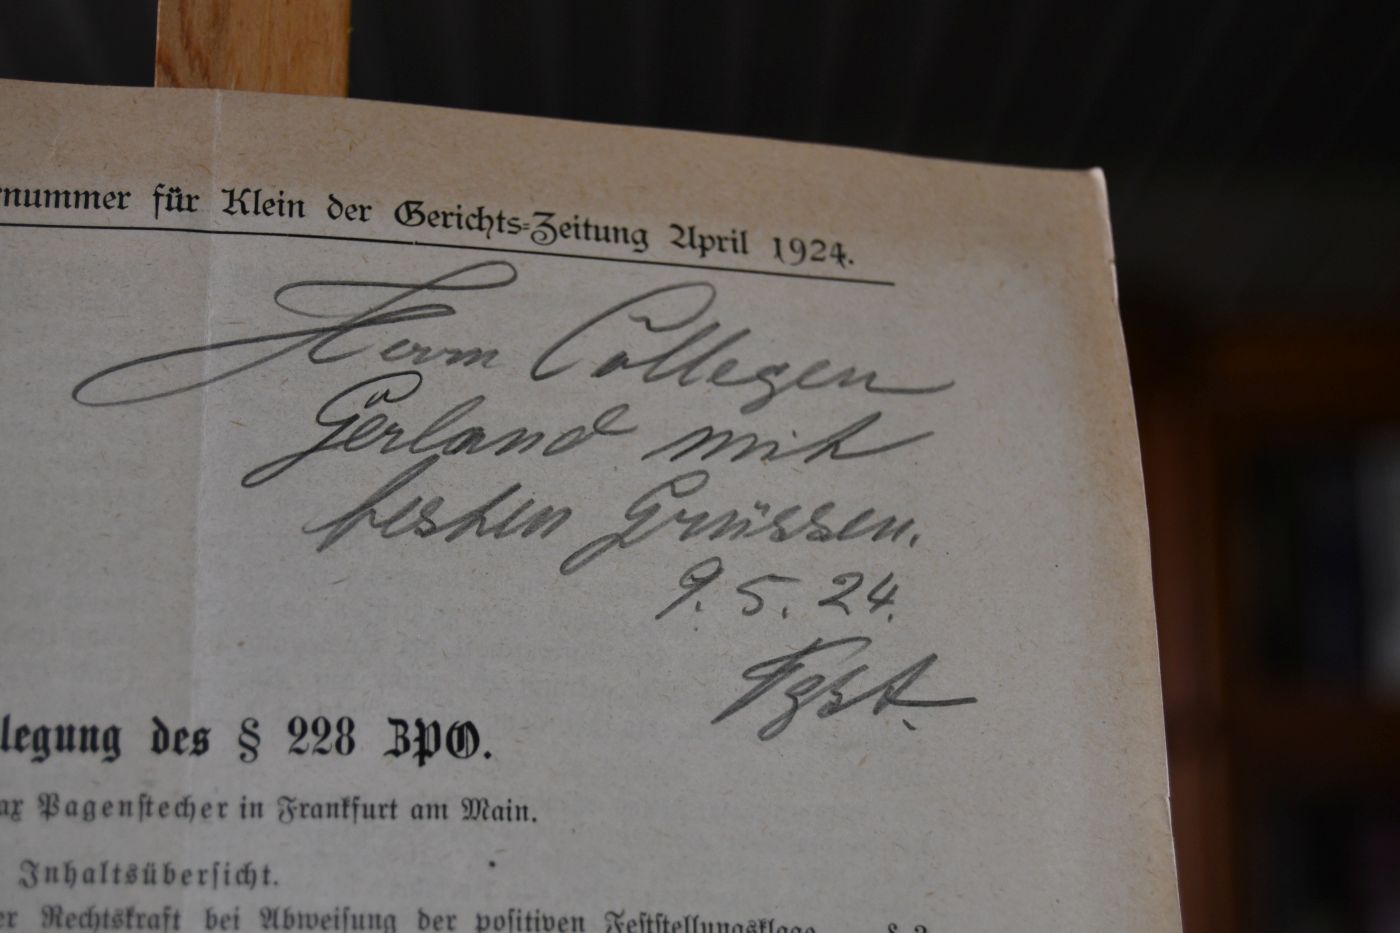 rnummer für Klein der Gerichts-Zeitung April 1924.
Herrn Collegen
Gerland mit
besten Grüssen.
9. 5. 24.
Pgst.
legung des § 228 ZPO.
ax Pagenstecher in Frankfurt am Main.
Inhaltsübersicht.
er Rechtskraft bei Abweisung der positiven Feststellungsklage